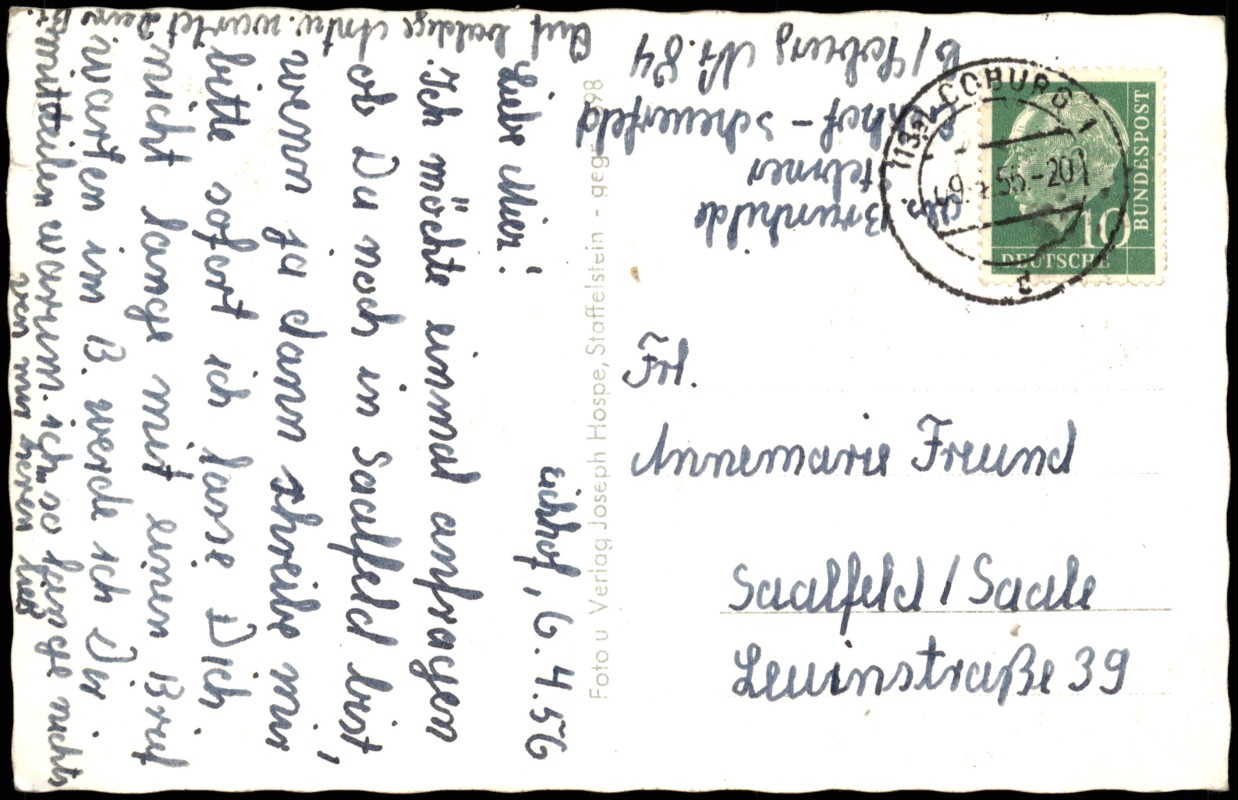 Eichhof, 6.4.56
Liebe Mier!
Ich möchte einmal anfragen
ob Du noch in Saalfeld bist,
wenn ja dann schreibe mir
bitte sofort ich lasse Dich
nicht lange mit einen Brief
warten im B. werde ich Dir
mitteilen warum ich so lange nichts
von mir hören ließ
Auf baldige Antw. wartet Deine Br.
Foto u Verlag Joseph Hospe, Staffelstein - ges. 98
Abs.
Brunhilde
Eichhof - Scheuerfeld
B/Coburg Nr. 84
COBURG 1
55.-20
a
10
DEUTSCHE
BUNDESPOST
Frl.
Annemarie Freund
Saalfeld / Saale
Leninstraße 39